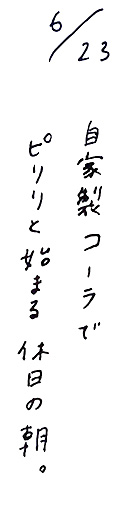 6/23
自家製コーラで
ピリリと始まる休日の朝。